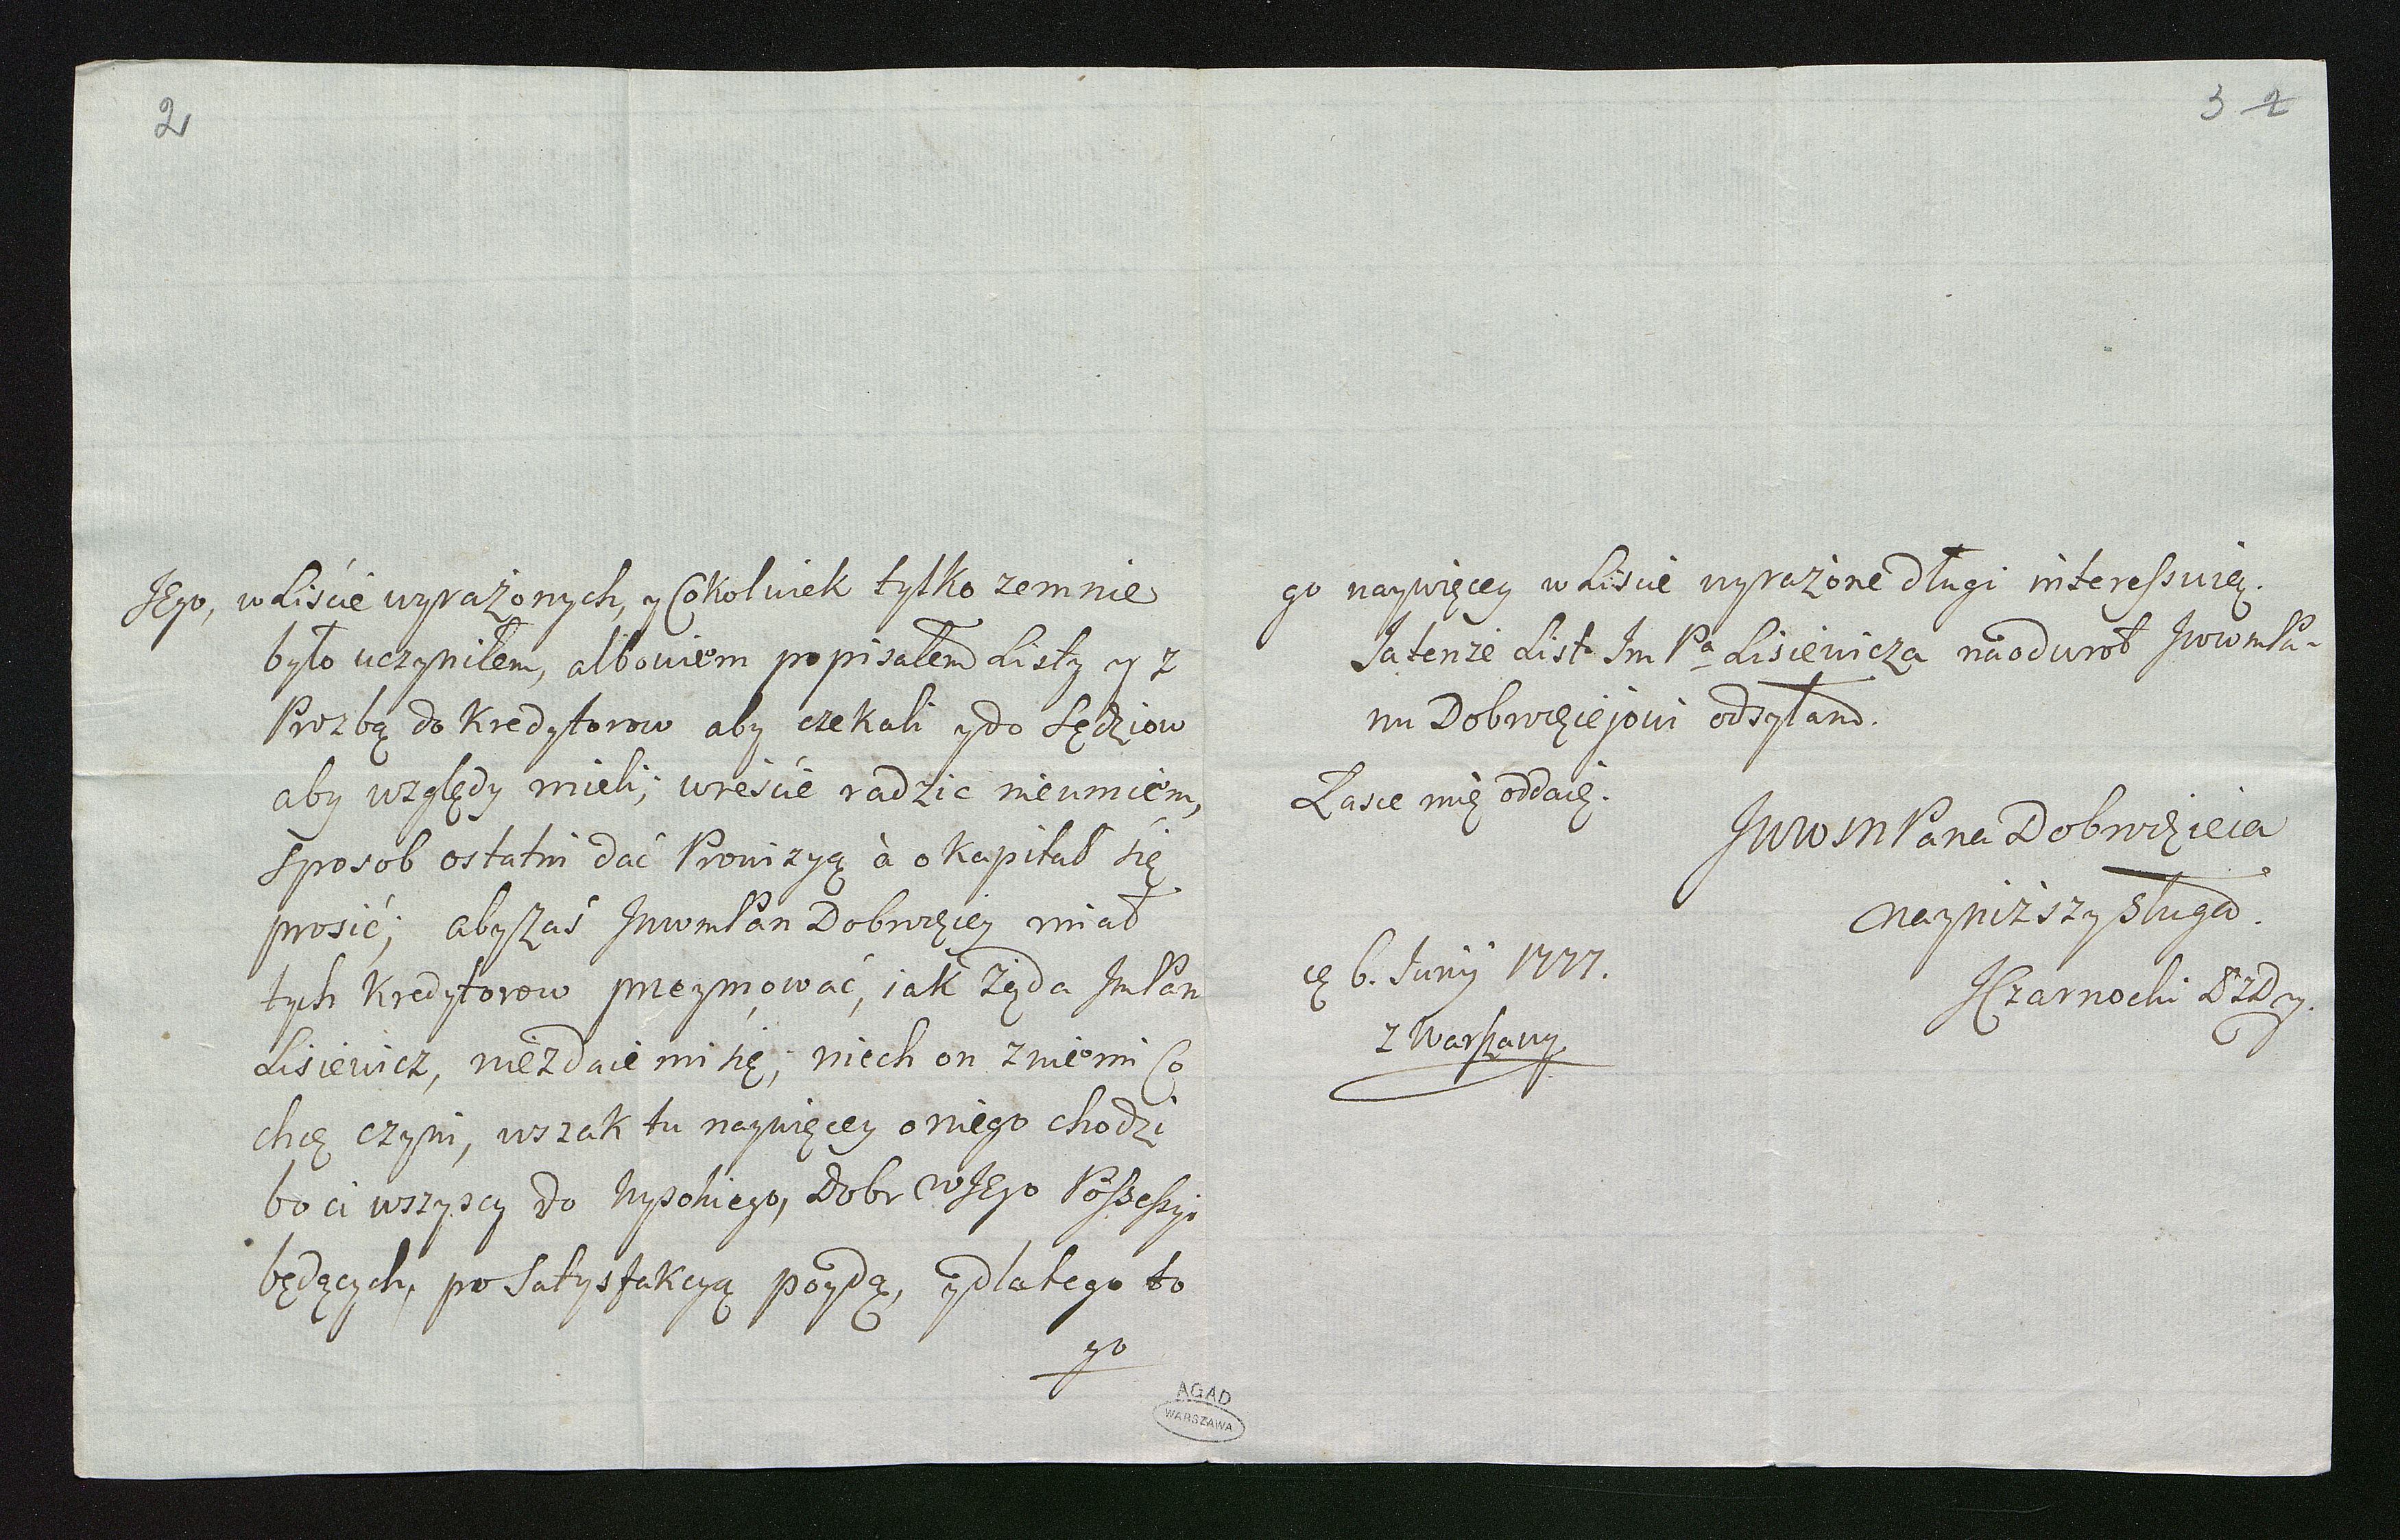 2
JEgo, w Liście wyrażonych, y Cokolwiek tylko zemnie
było uczyniłem, albowiem popisałem Listy y z
Prozbą do Kredytorow aby czekali y do Sędziow
aby względy mieli; wreście radzic nieumiem,
sposob ostatni dać Prowizyą à o kapitał się
prosić; abyzaś JWWmPan Dobrodzięiey miał
tych Kredytorow przeymować, iak żąda JmPan
Lisiewicz, niezdaie mi się; niech on z niemi Co
chcę czyni, wszak tu naywięcey o niego chodzi
bo ci wszyscy do Wysokiego, Dobr w JEgo Possessyi
będących, po Satysfakcyą poydą, y dlatego to
go
AGAD
WARSZAWA
3 2
go naywięcey w Liście wyrażone długi interessuią.
Ja tenże List Jm Pa Lisiewicza náodwrot JWWmPa-
nu Dobrodzięiejowi odsyłam.
Łasce mię oddaię.
JWWMPana Dobrodzięieia
naynizszy Sługa.
d 6. Junij 1777.
z Warszawy
JCzarnocki